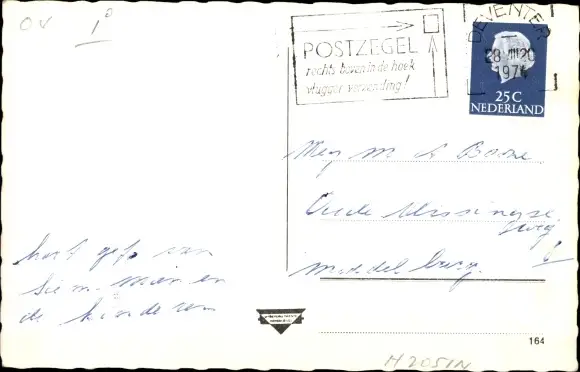 OV 1º
POSTZEGEL
rechts boven in de hoek
vlugger verzending!
DEVENTER
28 III 20
1974
25 C
NEDERLAND
Mej M
Oude Vlissingse
weg 6
Middelburg.
hart. gef. van
Siem. Mien en
de kinderen
164
H2051N